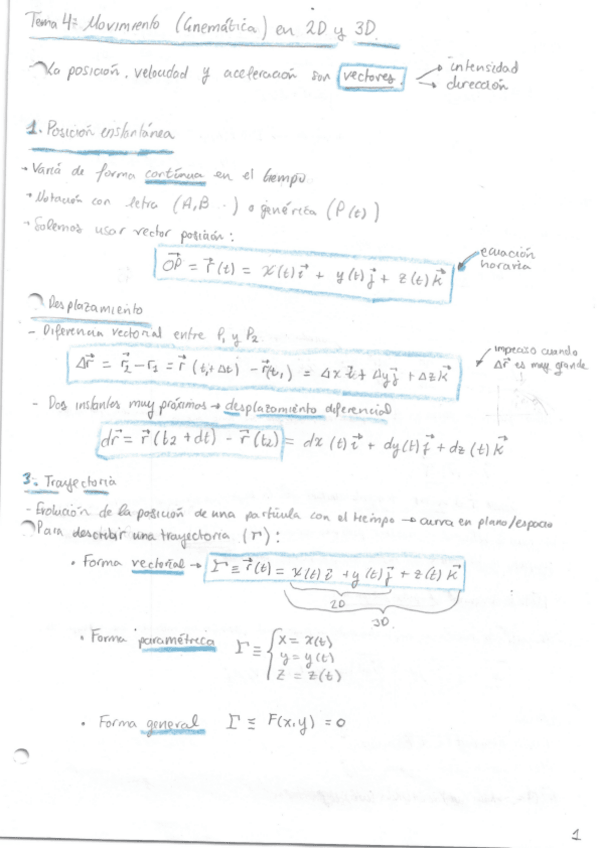 Tema 4: Movimiento (Cinemática) en 2D y 3D.
La posición, velocidad y aceleración son vectores. → intensidad
→ dirección
1. Posición instantánea
→ Varía de forma contínua en el tiempo
→ Notación con letra (A,B ..) o genérica (P(t))
→ Solemos usar vector posición:
OP⃗ = r⃗(t) = x(t)i⃗ + y(t)j⃗ + z(t)k⃗
ecuación horaria
Desplazamiento
- Diferencia vectorial entre P₁ y P₂
Δr⃗ = r⃗₂ - r₁ = r⃗(t₁+Δt) - r⃗(t₁) = Δx i⃗ + Δy j⃗ + Δz k⃗
cuando
Δr⃗ es muy grande
- Dos instantes muy próximos → desplazamiento diferencial
dr⃗ = r⃗(t₂ + dt) - r⃗(t₂) = dx(t)i⃗ + dy(t)j⃗ + dz(t)k⃗
3. Trayectoria
- Evolución de la posición de una partícula con el tiempo → curva en plano/espacio
Para describir una trayectoria (Γ):
• Forma vectorial → Γ ≡ r⃗(t) = x(t)i⃗ + y(t)j⃗ + z(t)k⃗
2D
3D.
• Forma paramétrica Γ ≡ { x = x(t)
y = y(t)
z = z(t)
• Forma general Γ ≡ F(x,y) = 0
1